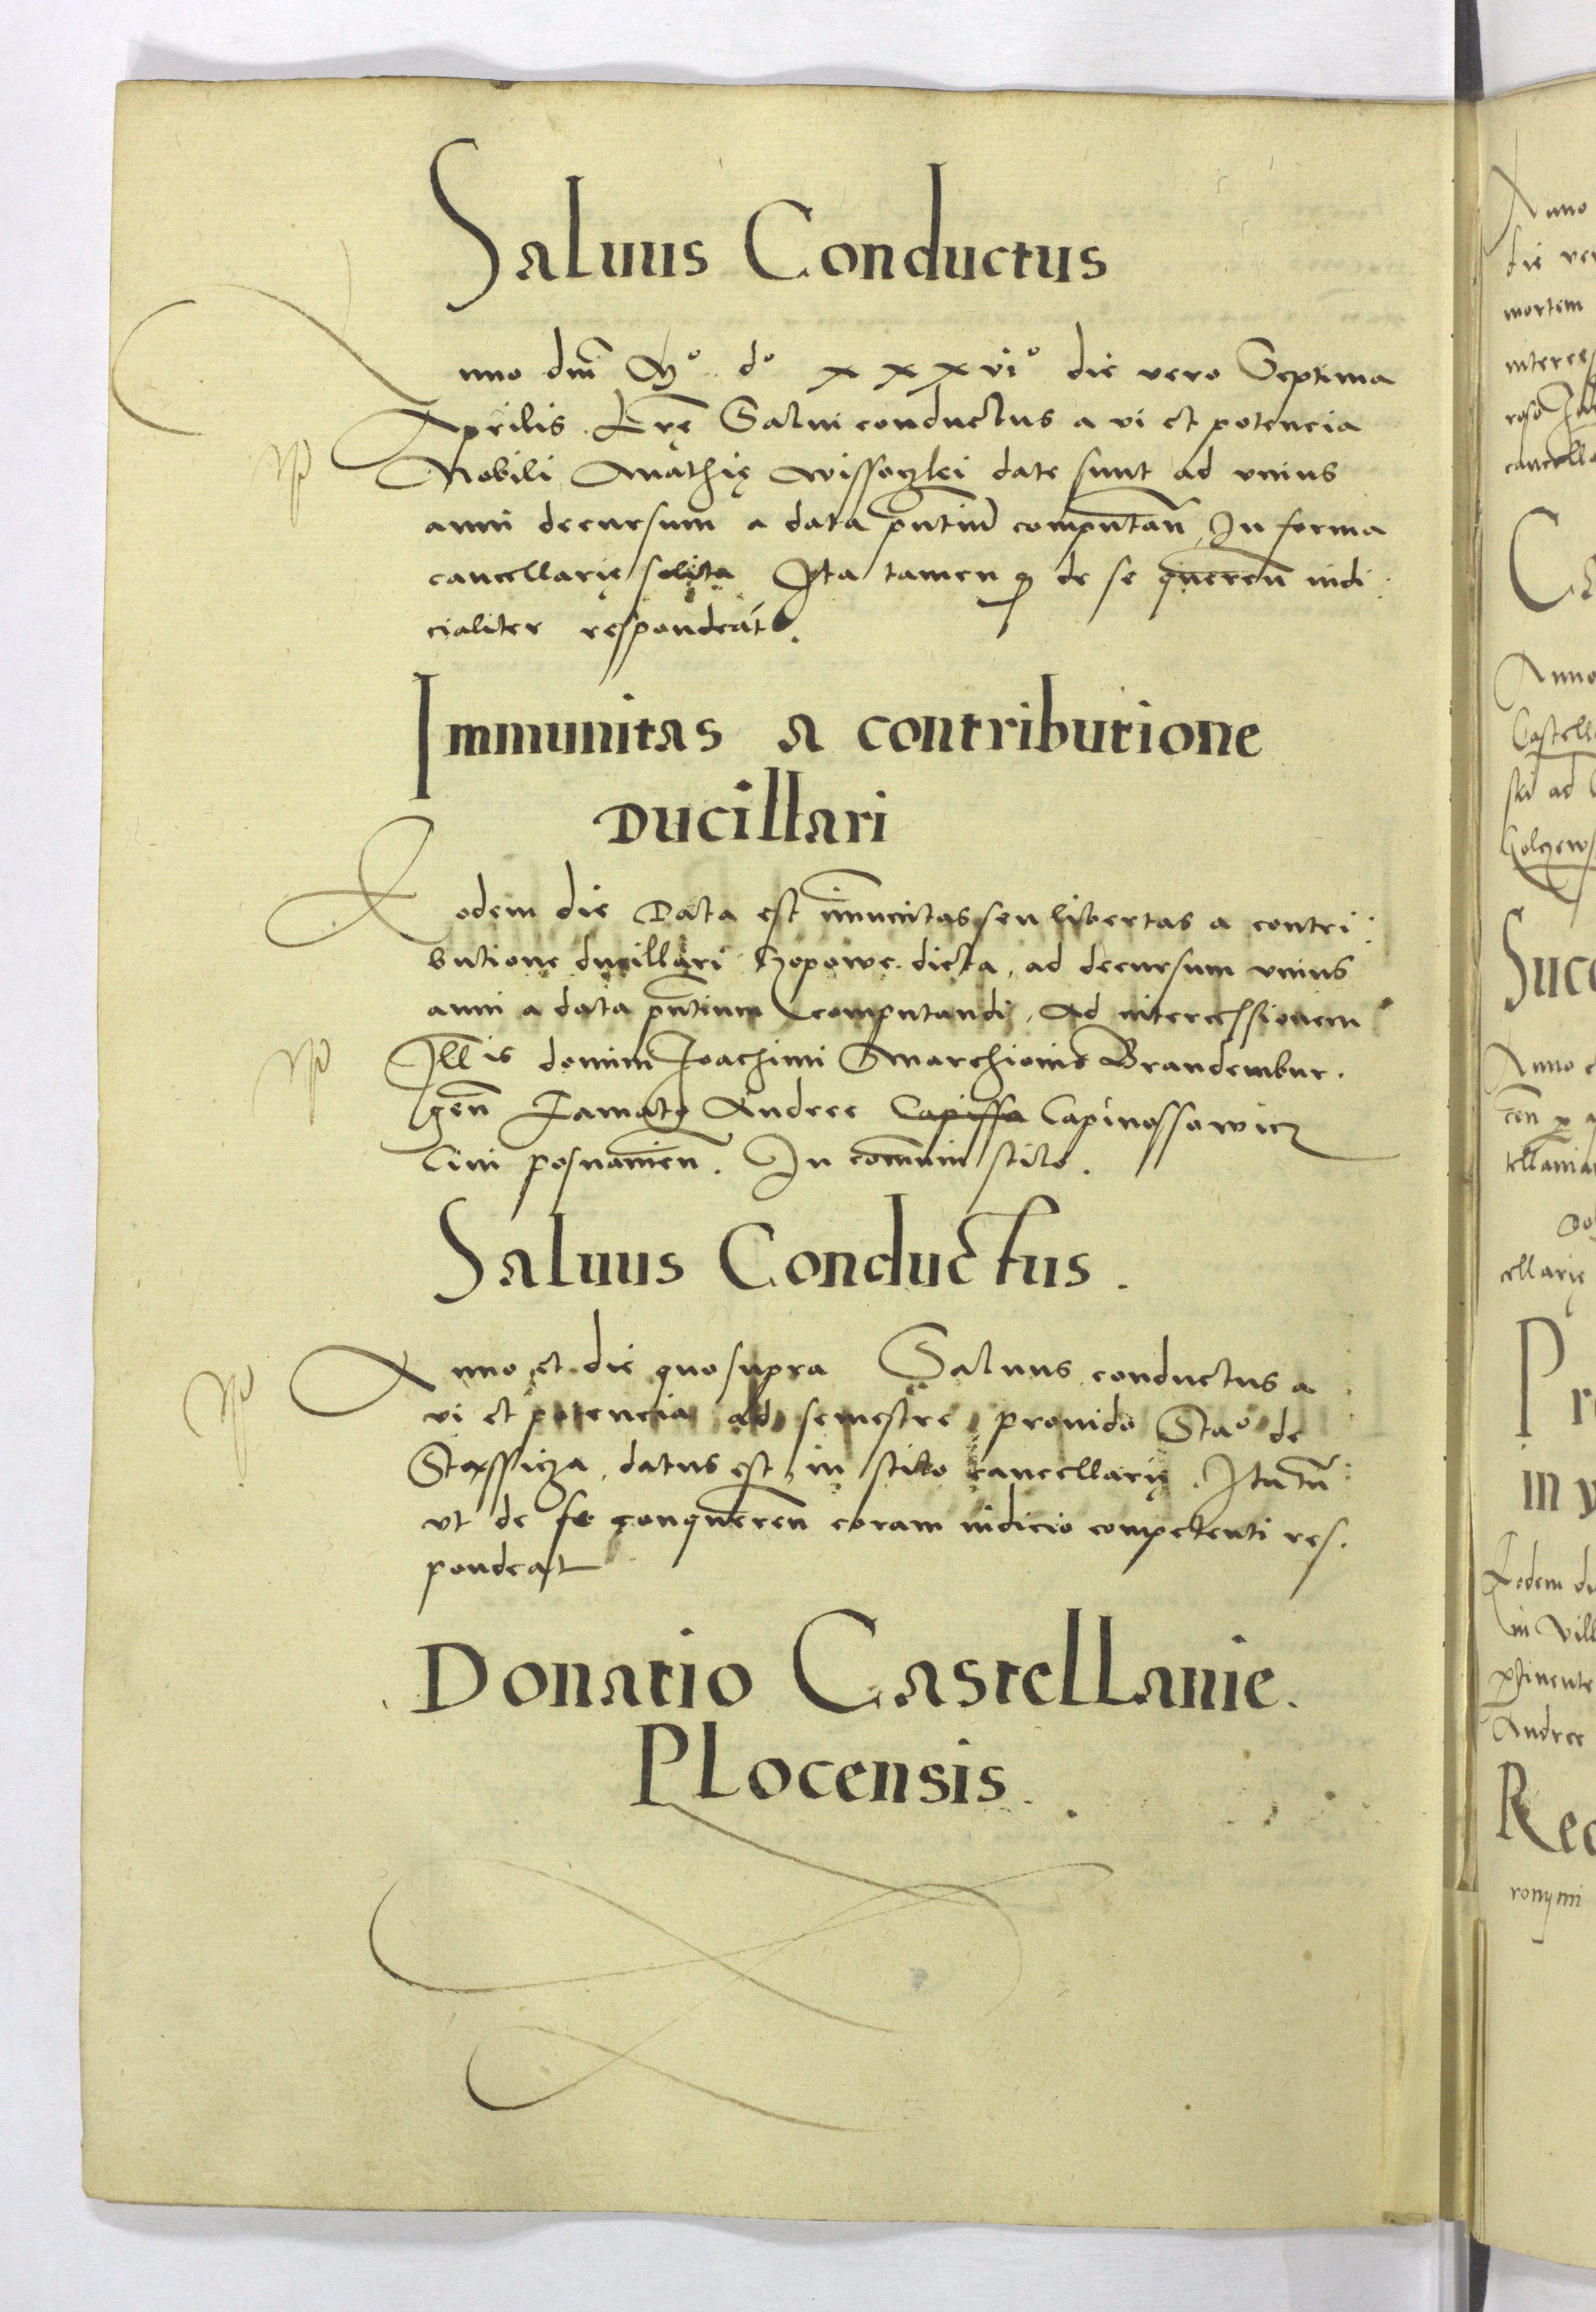 Saluus Conductus
Anno dni Mo do xxxvio die vero Septima
Aprilis. Lrę Salui conductus a vi et potencia
Nobili Mathię date sunt ad vnius
anni decursum a data pntium computan, In forma
cancellarię solita Ita tamen q de se queren iudi
cialiter respondeat.
Immunitas a contributione
Ducillari
Eodem die Data est immunitas seu libertas a contri
butione ducillari Czopowe dicta, ad decursum vnius
anni a data pntium computandi, Ad intercessionem
Illis domini Joachimi Marchionis Brandembur
gen Famato Andree Capissa Capinossowicz
Ciui posnanien. In communi stilo.
Saluus Conductus.
Anno et die quo supra Saluus conductus a
vi et potencia ad semestre prouido Stao de
datus est in stilo cancellarię. Ita tn
vt de se conqueren coram iudicio competenti res
pondeat
Donatio Castellanie.
Plocensis.
Anno
die ver
mortem
interces
cancella
Ca
Anno
Castell
ski ad
Succ
Anno
tellania
cellarię
Pr
in v
Eodem di
in vill
ptinente
Andree
Rec
ronymi